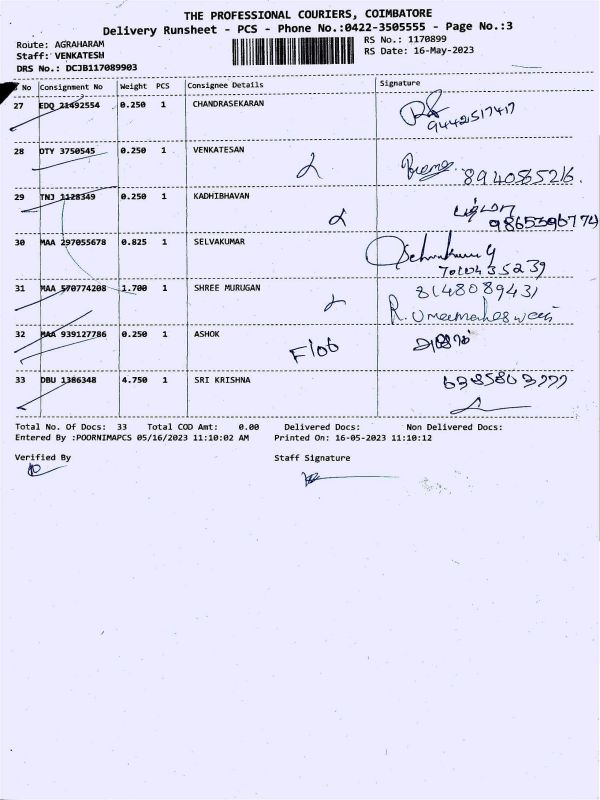 THE PROFESSIONAL COURIERS, COIMBATORE
Delivery Runsheet - PCS - Phone No.:0422-3505555 - Page No.:3
Route: AGRAHARAM RS No.: 1170899
Staff: VENKATESH RS Date: 16-May-2023
DRS No.: DCJB117089903
No Consignment No Weight PCS Consignee Details Signature
27 EDQ 21492554 0.250 1 CHANDRASEKARAN
9442517417
28 DTY 3750545 0.250 1 VENKATESAN
8940565216.
29 TNJ 1128349 0.250 1 KADHIBHAVAN
9865396774
30 MAA 297055678 0.825 1 SELVAKUMAR
Selvakumar G
31 MAA 570774208 1.700 1 SHREE MURUGAN 8148089431
R. Umamaheswari
32 MAA 939127786 0.250 1 ASHOK
33 DBU 1386348 4.750 1 SRI KRISHNA
Total No. Of Docs: 33 Total COD Amt: 0.00 Delivered Docs: Non Delivered Docs:
Entered By :POORNIMAPCS 05/16/2023 11:10:02 AM Printed On: 16-05-2023 11:10:12
Verified By Staff Signature